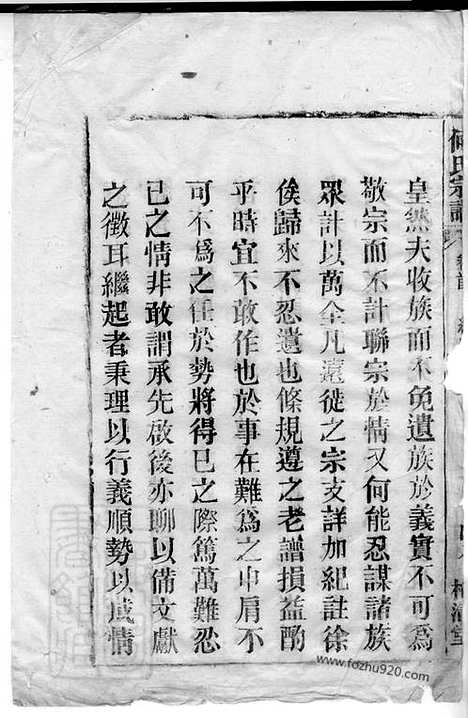 何氏宗譜
皇然夫收族而不免遺族於義實不可為
敬宗而不計聯宗於情又何能忍謀諸族
眾計以萬全凡遠徙之宗支詳加紀註徐
俟歸來不忍遺也條規遵之老譜損益酌
乎時宜不敢作也於事在難為之中肩不
可不為之任於勢將得已之際篤萬難忍
已之情非敢謂承先啟後亦聊以備文獻
之徵耳繼起者秉理以行義順勢以成情
www.fozhu920.com